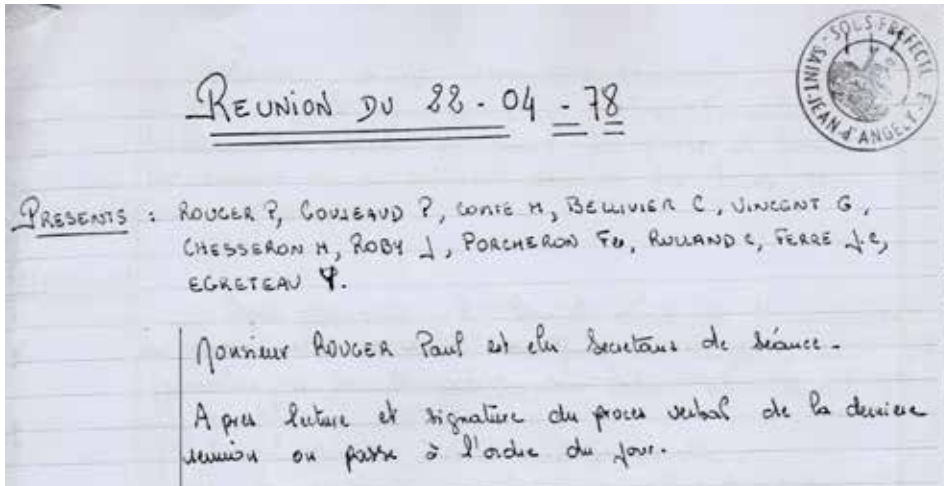 SOUS-PREFECTURE
SAINT-JEAN d'ANGELY
REUNION DU 22-04-78
PRESENTS : ROUGER P, GOUJEAUD P, CONTE M, BELLIVIER C, VINCENT G,
CHESSERON M, ROBY J, PORCHERON Fr, RULLAND C, FERRE J.C,
EGRETEAU Y.
Monsieur ROUGER Paul est elu Secretaire de séance.
Apres lecture et signature du proces verbal de la derniere
reunion on passe à l'ordre du jour.